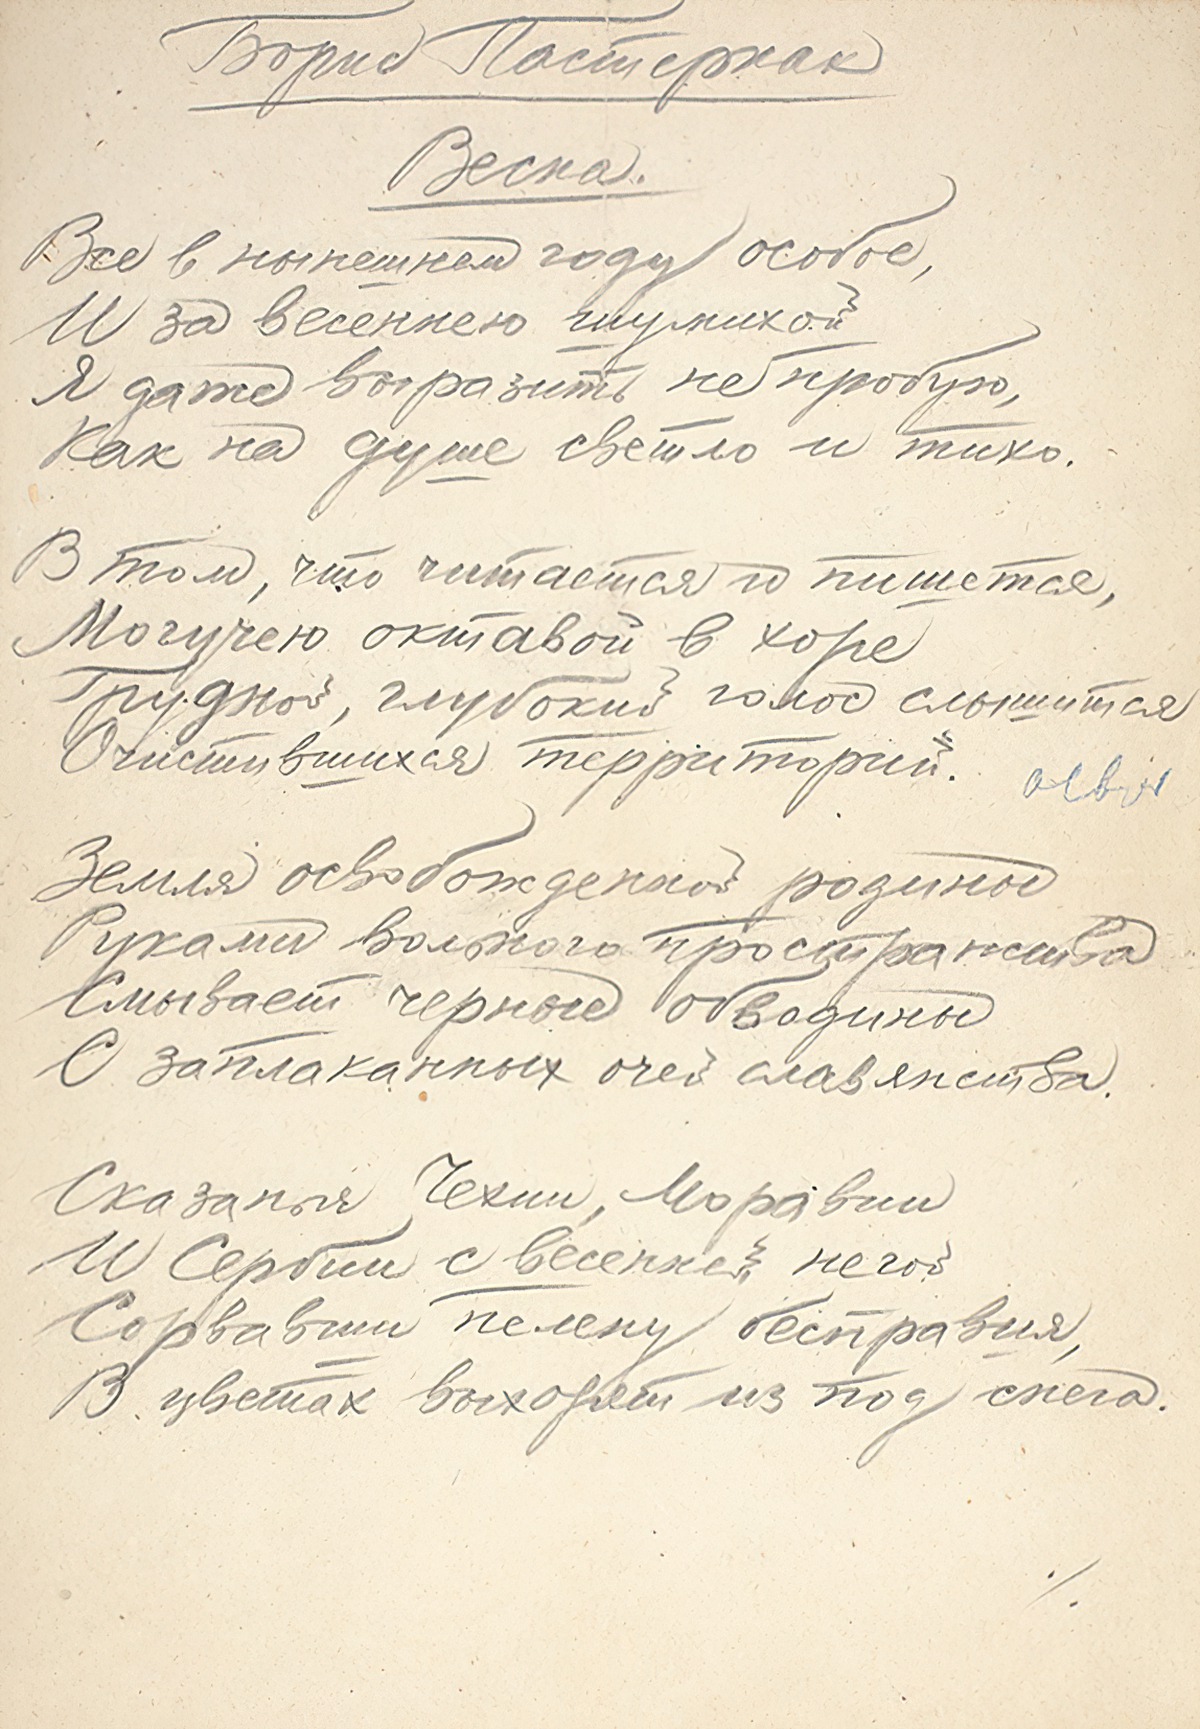 Борис Пастернак
Весна.
Все в нынешнем году особое,
И за весеннею шумихой
Я даже выразить не пробую,
Как на душе светло и тихо.
В том, что читается и пишется,
Могучею октавой в хоре
Грудной, глубокий голос слышится
Очистившихся территорий.
Земля освобожденной родины
Руками вольного пространства
Смывает черные обводины
С заплаканных очей славянства.
Сказанья Чехии, Моравии
И Сербии с весенней негой
Сорвавши пелену бесправия,
В цветах выходят из под снега.
./.